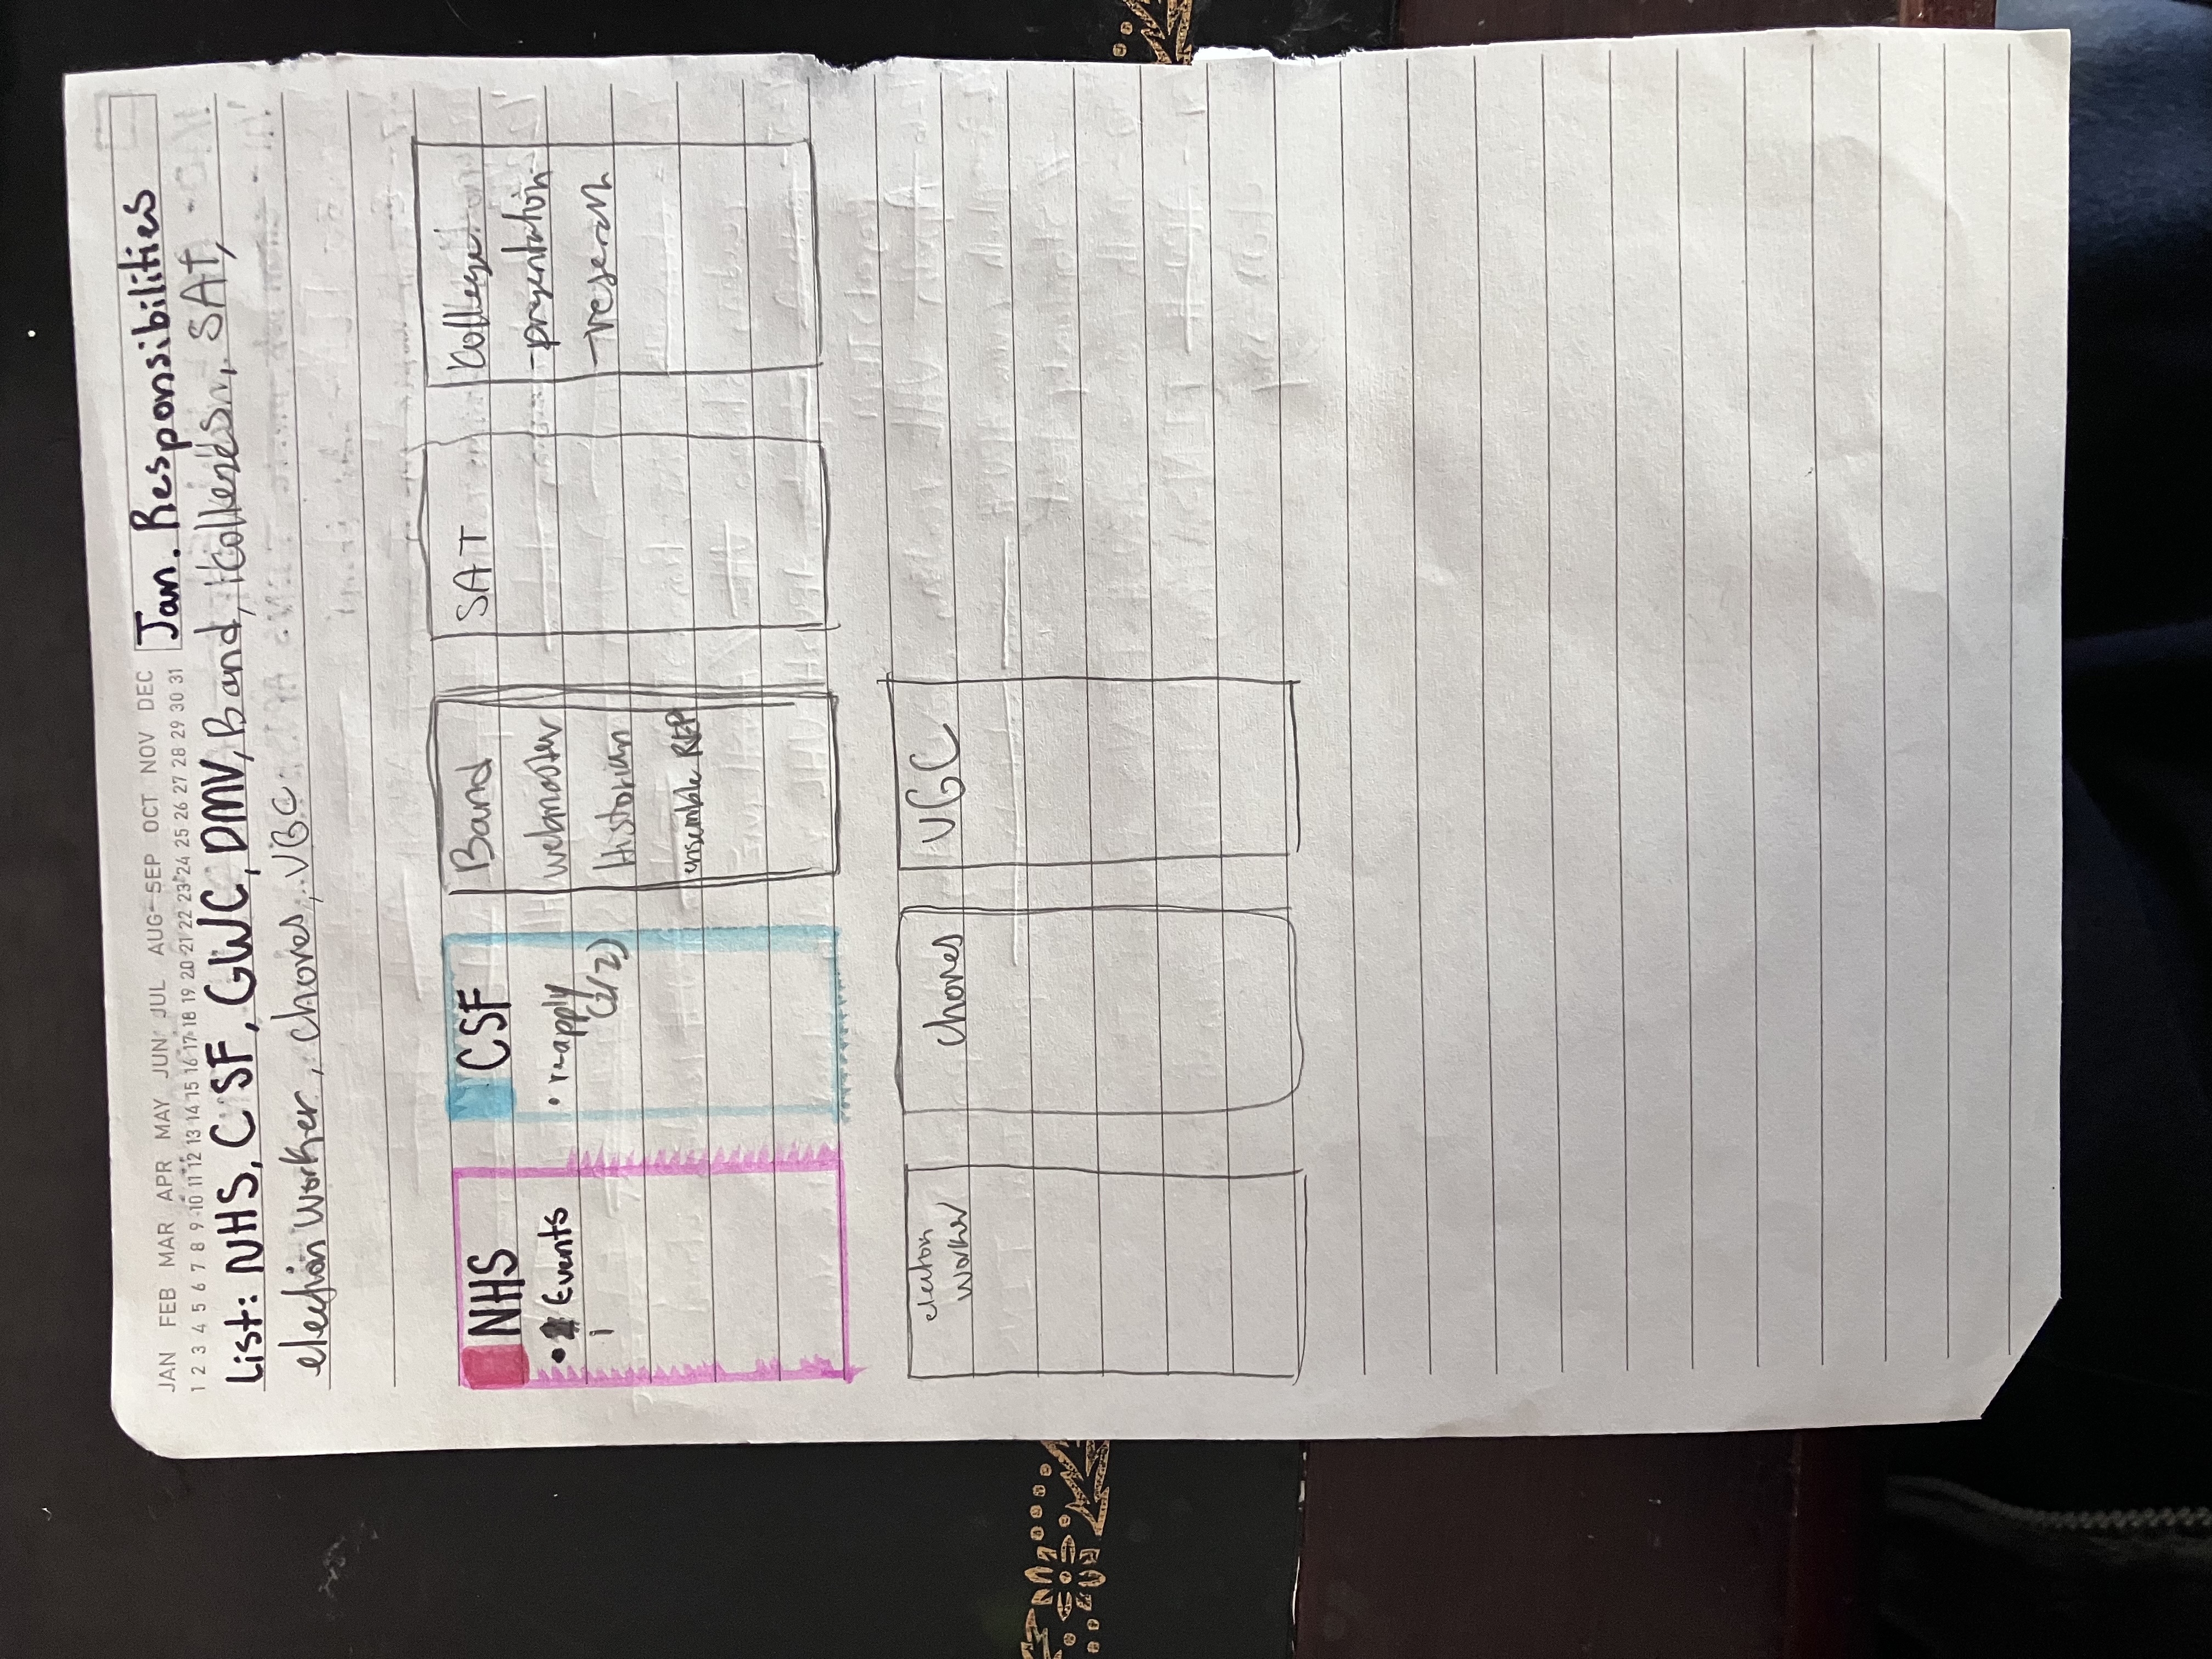 JAN FEB MAR APR MAY JUN JUL AUG SEP OCT NOV DEC
1 2 3 4 5 6 7 8 9 10 11 12 13 14 15 16 17 18 19 20 21 22 23 24 25 26 27 28 29 30 31
Jan. Responsibilities
List: NHS, CSF, GWC, DMV, Band, SAT,
election worker, chores, VGC
NHS
• Events
CSF
• re-apply
(2/2)
Band
webmaster
Historian
ensemble REP
SAT
College
-presentation
-research
election
worker
chores
VGC